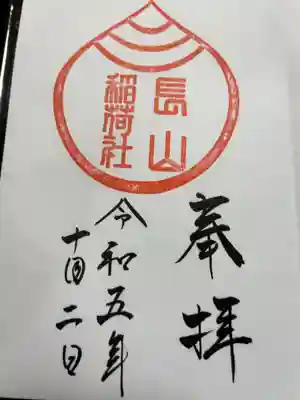 長山
稲荷社
奉拝
令和五年
十月二日